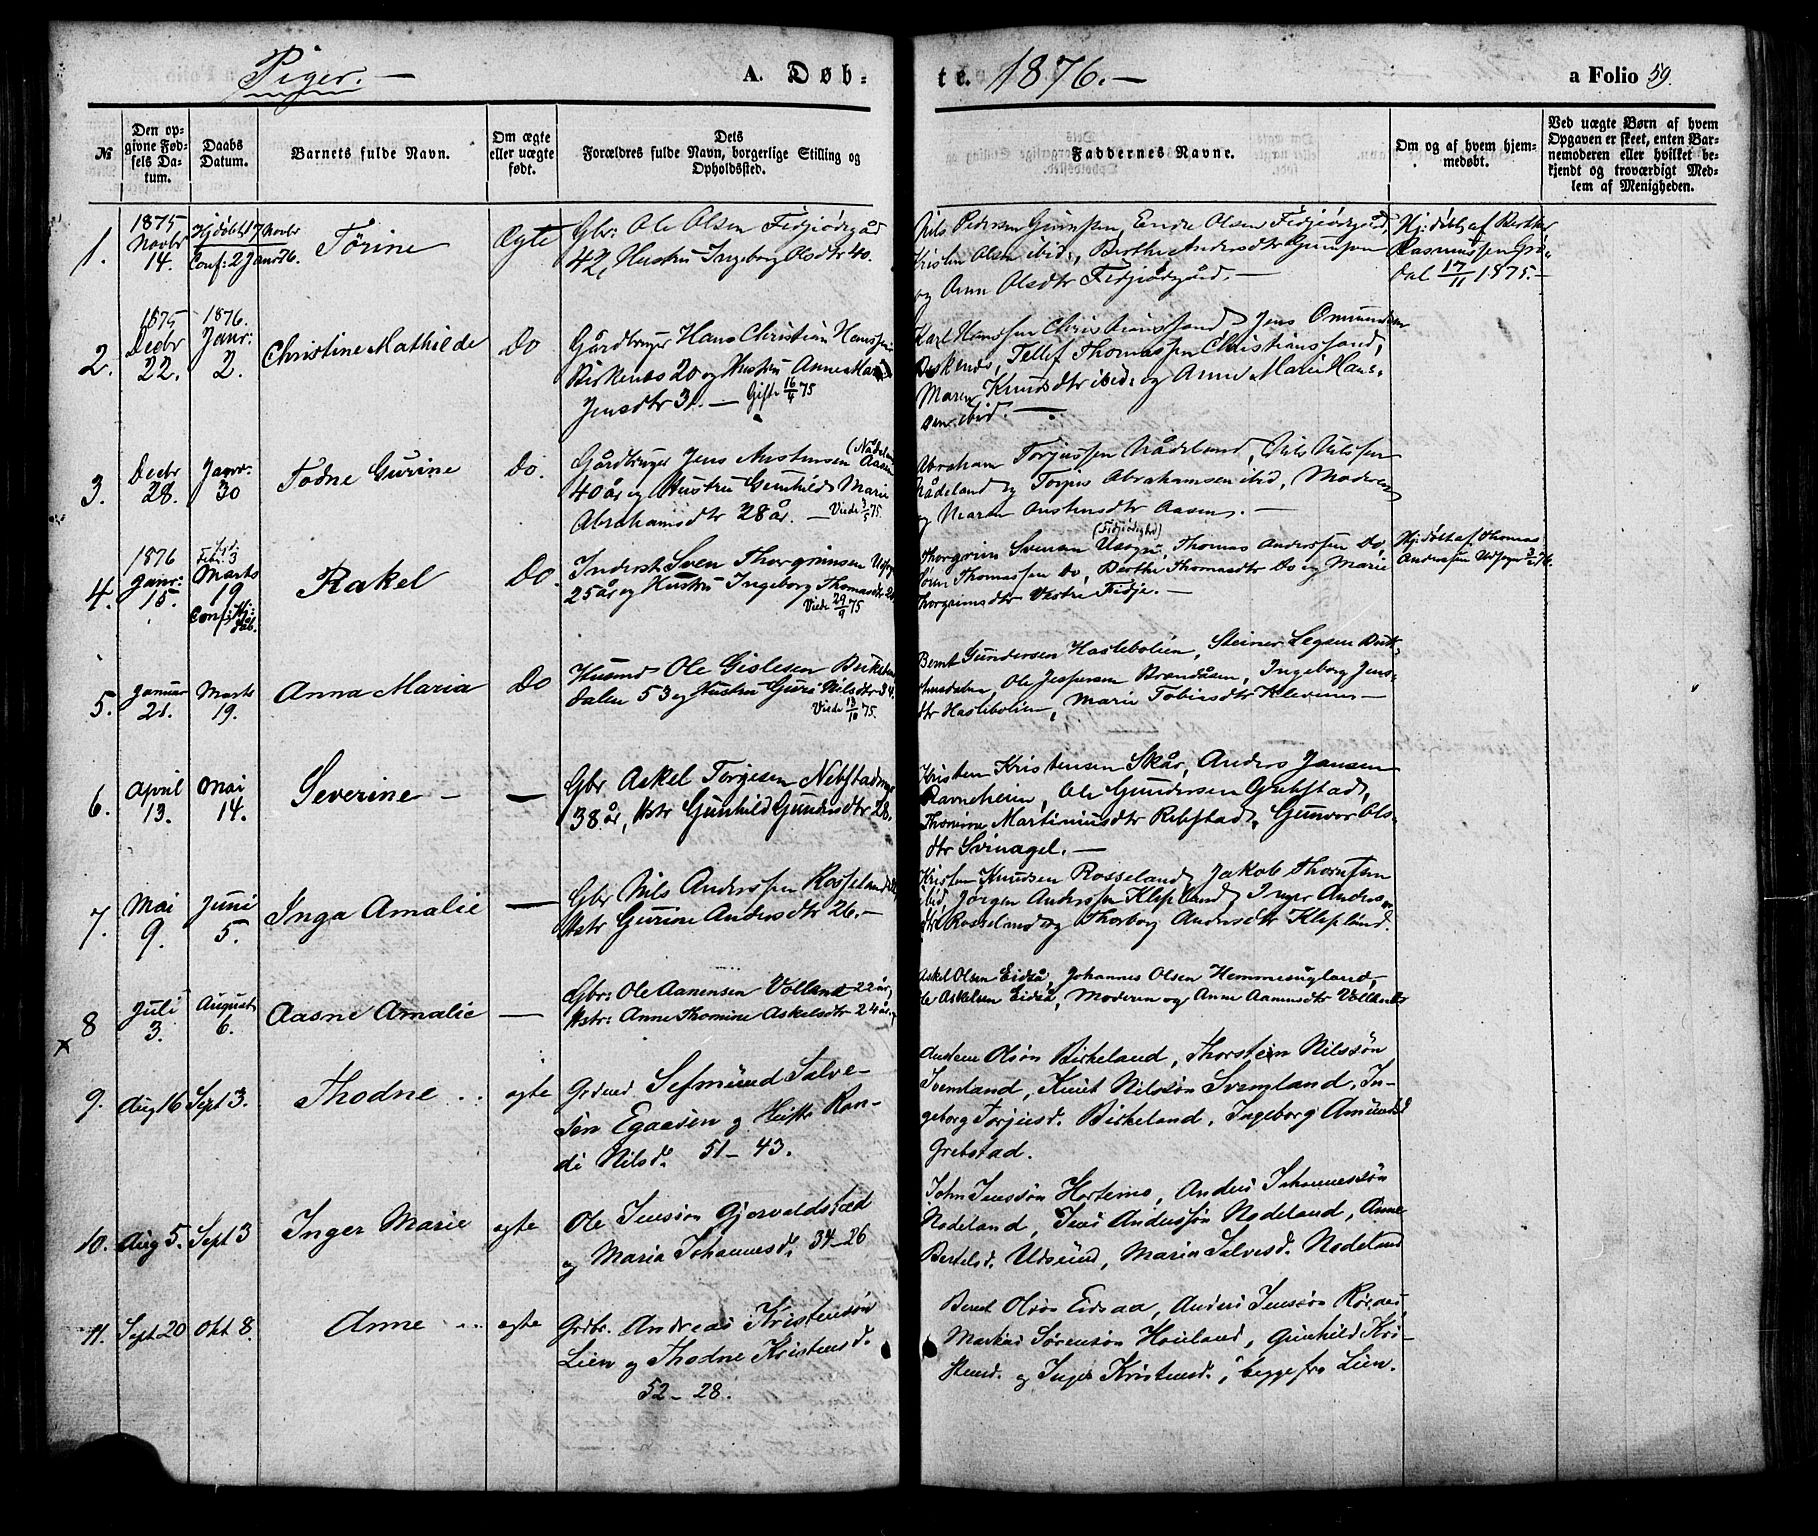 Piger. —
A. Døb-
te. 1876. —
a Folio 59.
№
Den op-
givne Fød-
sels Da-
tum.
Daabs
Datum.
Barnets fulde Navn.
Om ægte
eller uægte
født.
Dets
Forældres fulde Navn, borgerlige Stilling og
Opholdssted.
Faddernes Navne.
Om og af hvem hjem-
medøbt.
Ved uægte Børn af hvem
Opgaven er skeet, enten Bar-
nemoderen eller hvilket be-
kjendt og troværdigt Med-
lem af Menigheden.
1.
1875
Novbr
14.
Hjdøbt 17 Novbr
Conf: 2 Janr 76.
Tørine
Ægte
Gbr: Ole Olsen Fidjiødegård
42, Hustru Ingeborg Olsdtr 40.
Nils Pedersen Endre Olsen Fidjiødegård,
Kristen Olsen ibid:, Berthe Andersdtr
og Anne Olsdtr Fidjiødegård. —
Hj: døbt af Berthe
Rasmussen
dal 17/11 1875. —
2.
1875
Decbr
22.
1876.
Janr:
2.
Christine Mathilde
Do
Gårdbruger Hans Christian Hanssen
Birkenes 20 og Hustru Anne Marie
Jensdtr 31. — Gifte 16/4 75
Karl Hanssen Christianssand, Jens Omundsen
Birkenes, Tellef Thomassen Christianssand,
Maren Knudsdtr ibid: og Anne Marie Han-
sen ibid. —
3.
Decbr
28.
Janr:
30
Todne Gurine
Do.
Gårdbruger Jens Aastensen Aasen
40 år og Hustru Gunhild Marie
Abrahamsdtr 28 år. — Viede 3/5 75.
Abraham Torjussen Rådeland, Nils Nilssen
Rådeland og Torjus Abrahamsen ibid, Moderen
og Maren Aastensdtr Aasen. —
4.
1876
Janr:
15.
Marts
19
Conf: Hj:
døb.
Rakel
Do.
Inderst Sven Thorgrimsen
25 år og Hustru Ingeborg Thomasdtr
Viede 29/9 75
Thorgrim Svensen Thomas Anderssen Do,
Søren Thomassen Do, Berthe Thomasdtr Do og Marie
Thorgrimsdtr Vestre Fidje. —
Hj: døbt af Thomas
Anderssen
5.
Januar
21.
Marts
19.
Anna Maria
Do
Husmd Ole Gislesen Birkeland
dalen 53 og Hustru Guri Nilsdtr
Viede 13/10 75.
Bernt Gundersen Haslebolien, Steiner
Ole Jespersen Ingeborg Jens-
dtr Haslebolien, Marie Tobiasdtr
6.
April
13.
Mai
14.
Severine —
—
Gbr Askel Torgesen
38 år, Hstr Gunhild Gundersdtr 28.
Kristen Kristensen Skår, Anders Jansen
Ravneheien, Ole Gundersen Grebstad,
Thomine Martiniusdtr Rebstad, Gunvor Ols-
dtr Svinagel. —
7.
Mai
9.
Juni
5.
Inga Amalie
—
Gbr Nils Anderssen Rosseland
Hstr Gurine Andersdtr 26. —
Kristen Knudsen Rosseland, Jakob
ibid, Jørgen Anderssen Klepland, Inger Anders-
dtr Rosseland og Thorborg Andersdtr Klepland.
8
x
Juli
3.
August
6.
Aasne Amalie
—
Gbr: Ole Aanensen Volland 22 år,
Hstr: Anne Thomine Askelsdtr 24 år.
Askel Olsen Eidså, Johannes Olsen Hommesugland,
Ole Askelsen Eidså, Moderen og Anne Aanensdtr Volland
9.
Aug 16
Sept 3.
Thodne
ægte
Grdmd Sefmund Salve-
sen Egaasen og Hustr Ran-
di Nilsd. 51 — 43.
Olsøn Birkeland, Thorstein Nilssøn
Svemland, Knut Nilssøn Svemland, In-
geborg Torjusd. Birkeland, Ingeborg Amundsd
Grebstad.
10.
Aug 5.
Sept 3
Inger Marie
ægte
Ole Jenssøn Gjervoldstad
og Maria Johannesd. 34 — 26
John Jenssøn Hortemo, Anders Johannessøn
Nodeland, Jens Anderssøn Nodeland, Anne
Bertelsd. Udsund, Maria Salvesd. Nodeland
11.
Sept 20
Okt 8.
Anne
ægte
Grdbr. Andreas Kristensøn
Lien og Thodne Kristensd.
52 — 28.
Bernt Olsøn Eidsaa, Anders Jenssøn
Markus Sørensøn Houland, Gunhild Kri-
stensd. og Inger Kristensd., begge fra Lien.